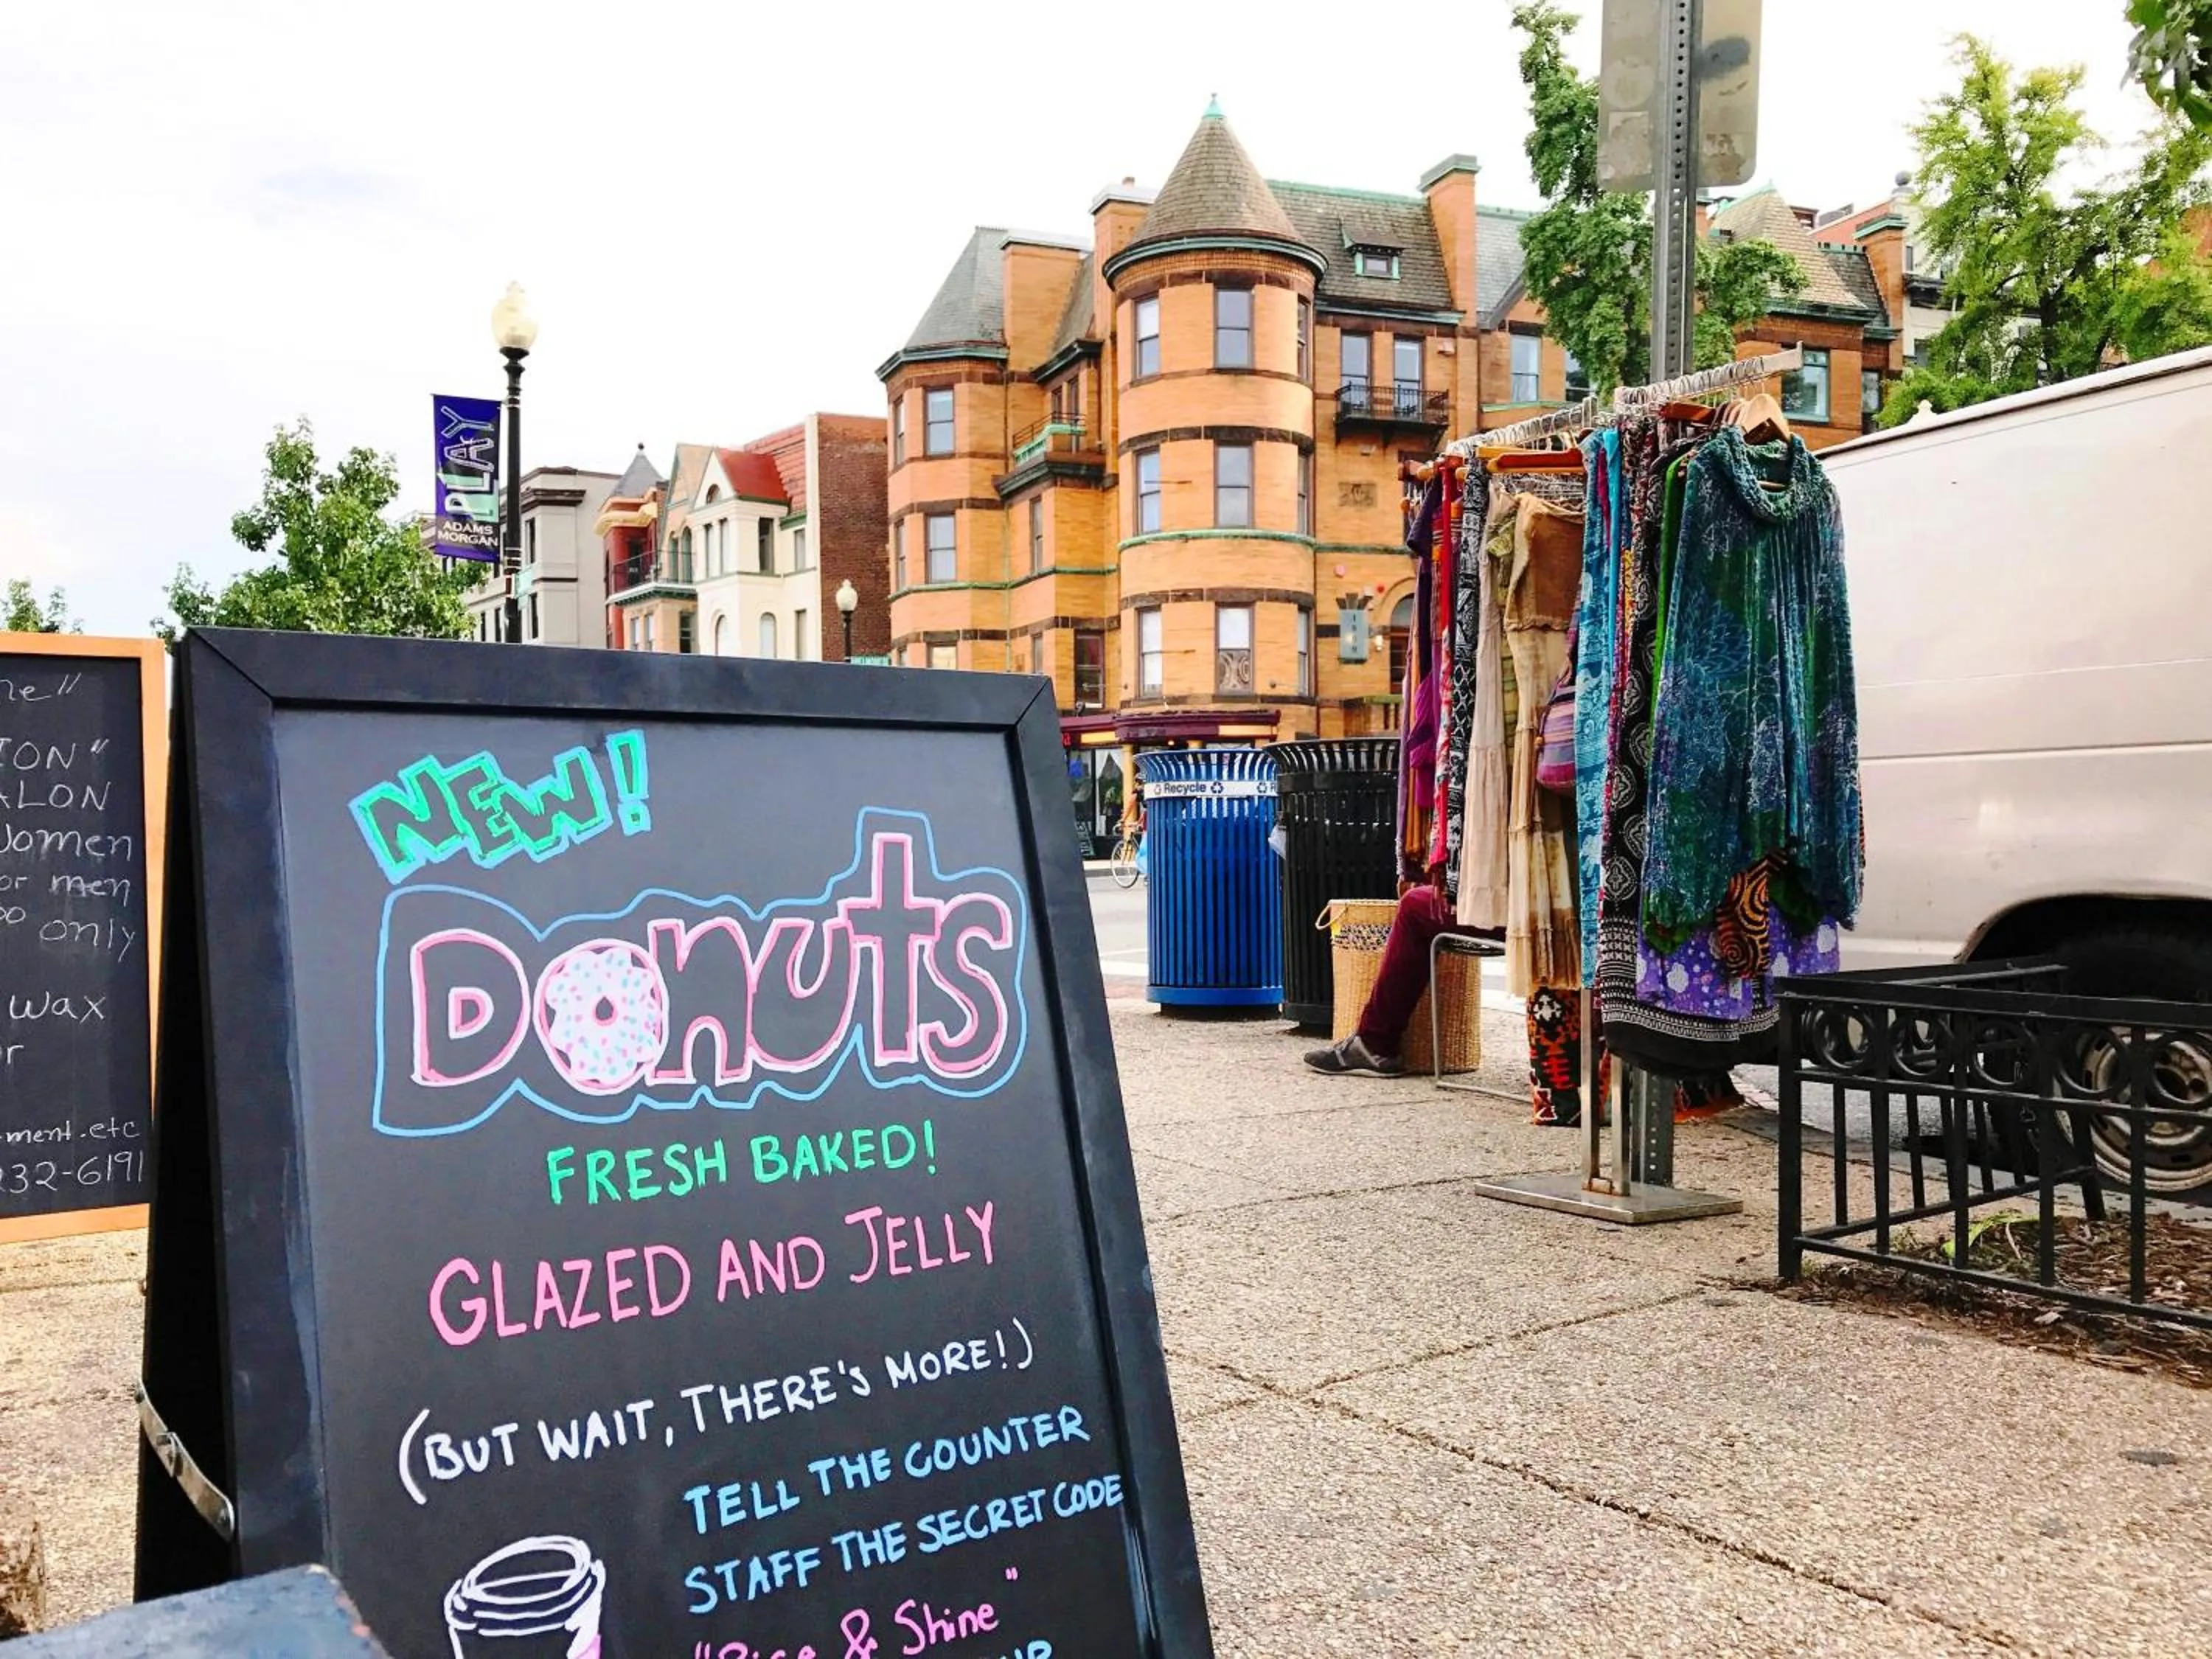 PLAY
ADAMS
MORGAN
ON"
ALON
Women
or men
only
wax
ment.etc
232-6191
NEW!
DONUTS
FRESH BAKED!
GLAZED AND JELLY
(BUT WAIT, THERE'S MORE!)
TELL THE COUNTER
STAFF THE SECRET CODE
"Rise & Shine"
Recycle